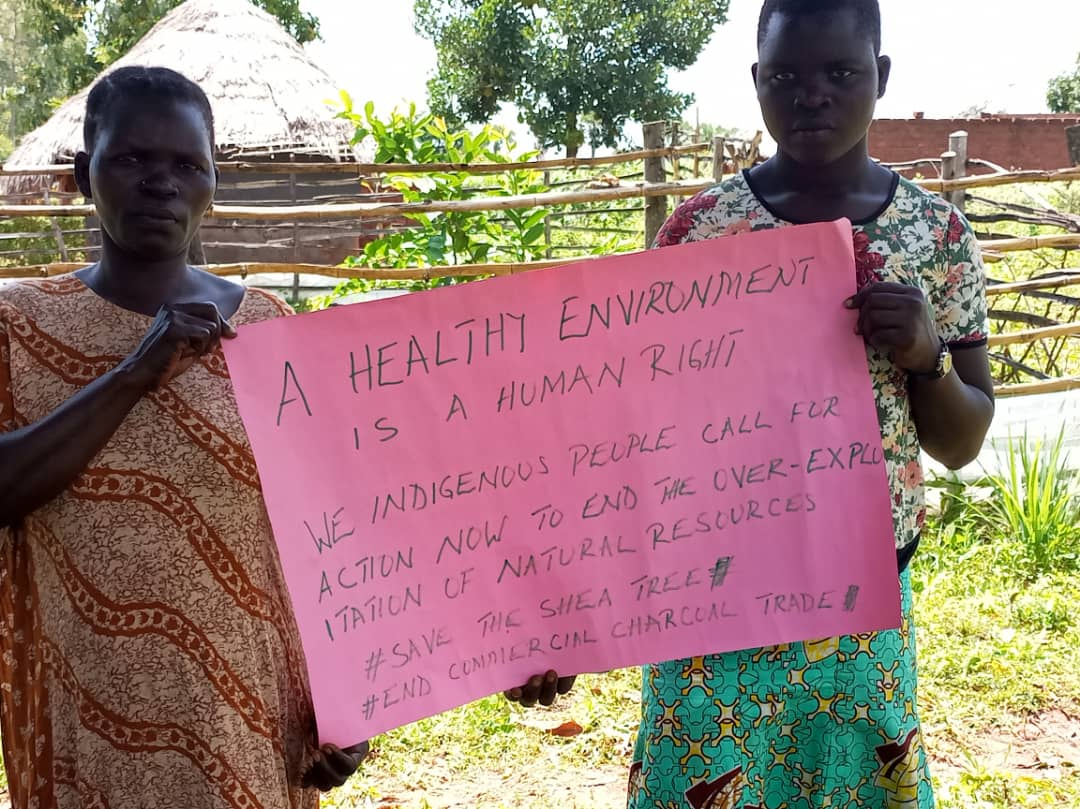 A HEALTHY ENVIRONMENT
IS A HUMAN RIGHT
WE INDIGENOUS PEOPLE CALL FOR
ACTION NOW TO END THE OVER-EXPLO
ITATION OF NATURAL RESOURCES
#SAVE THE SHEA TREE
#END COMMERCIAL CHARCOAL TRADE